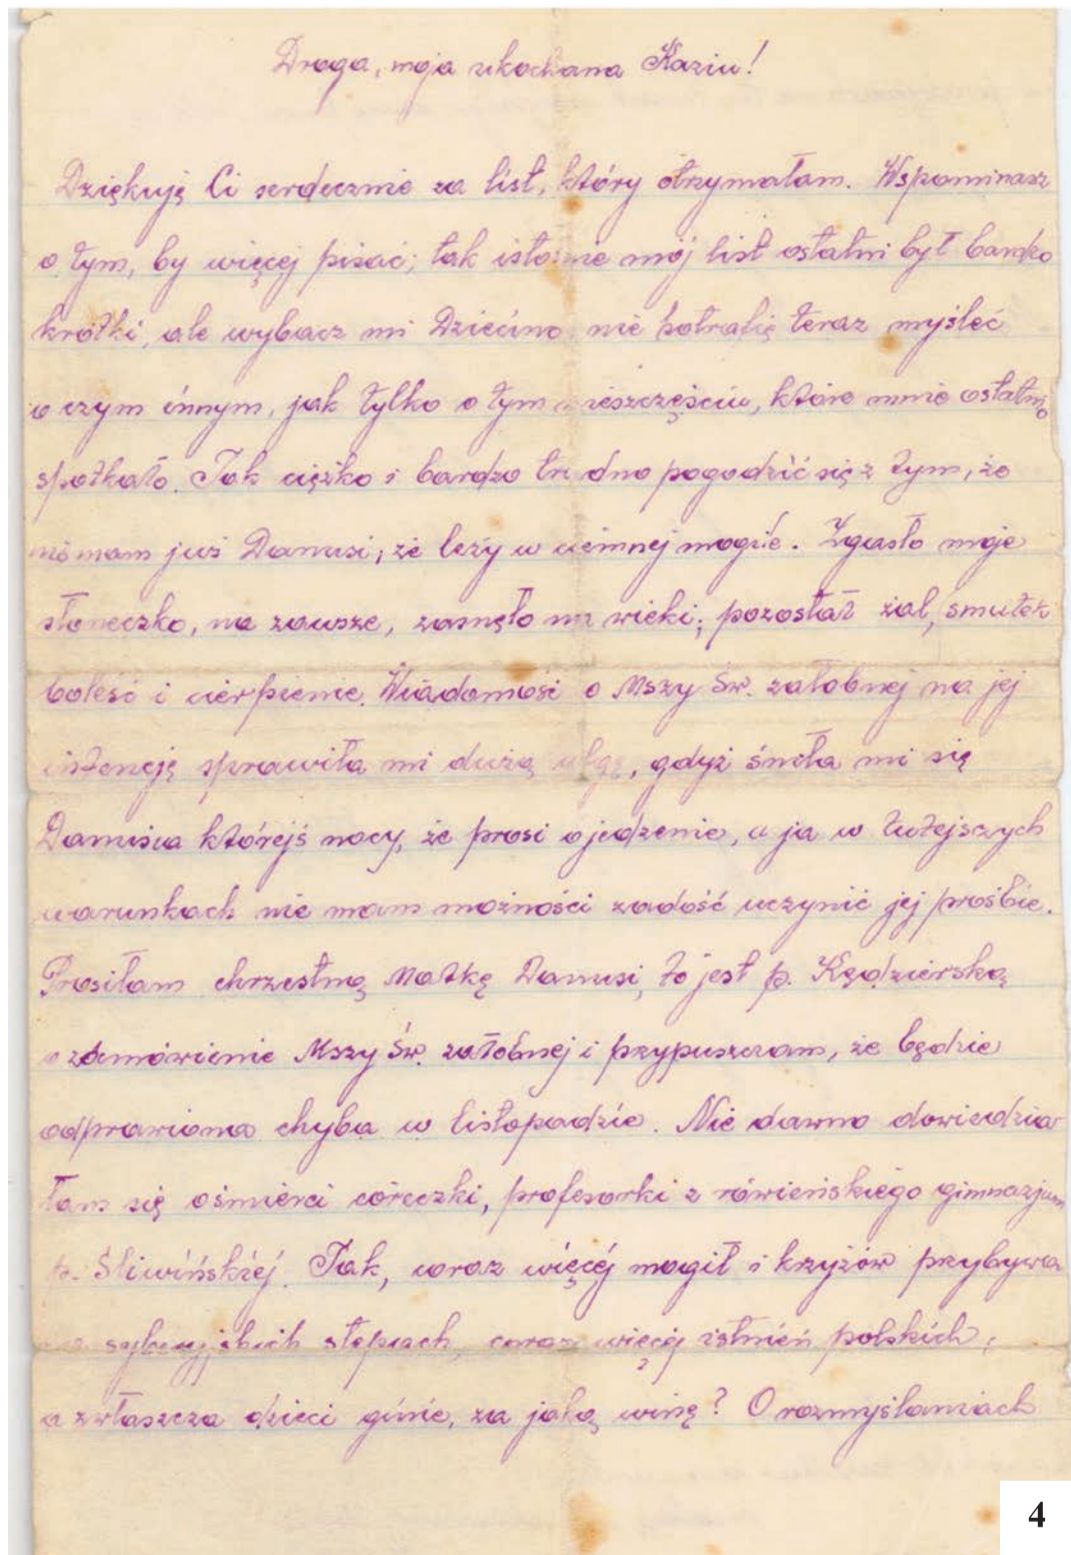 Droga, moja ukochana Kaziu!
Dziękuję Ci serdecznie za list, który otrzymałam. Wspominasz
o tym, by więcej pisać; tak istotnie mój list ostatni był bardzo
krótki, ale wybacz mi Dziecino nie potrafię teraz myśleć
o czym innym, jak tylko o tym nieszczęściu, które mnie ostatnio
spotkało. Tak ciężko i bardzo trudno pogodzić się z tym, że
nie mam już Danusi, że leży w ciemnej mogile. Zgasło moje
słoneczko, na zawsze, zasnęło na wieki; pozostał żal, smutek
boleść i cierpienie. Wiadomość o Mszy Św. żałobnej na jej
intencję sprawiła mi dużą ulgę, gdyż śniła mi się
Danusia którejś nocy, że prosi o jedzenie, a ja w tutejszych
warunkach nie mam możności zadość uczynić jej prośbie.
Prosiłam chrzestną Matkę Danusi, to jest p. Kędzierską
o zamówienie Mszy Św. żałobnej i przypuszczam, że będzie
odprawiona chyba w listopadzie. Nie dawno dowiedzia
łam się o śmierci córeczki, profesorki z rówieńskiego gimnazjum
p. Śliwińskiej. Tak, coraz więcej mogił i krzyżów przybywa
na syberyjskich stepach, coraz więcej istnień polskich,
a zwłaszcza dzieci ginie, za jaką winę? O rozmyślaniach
4